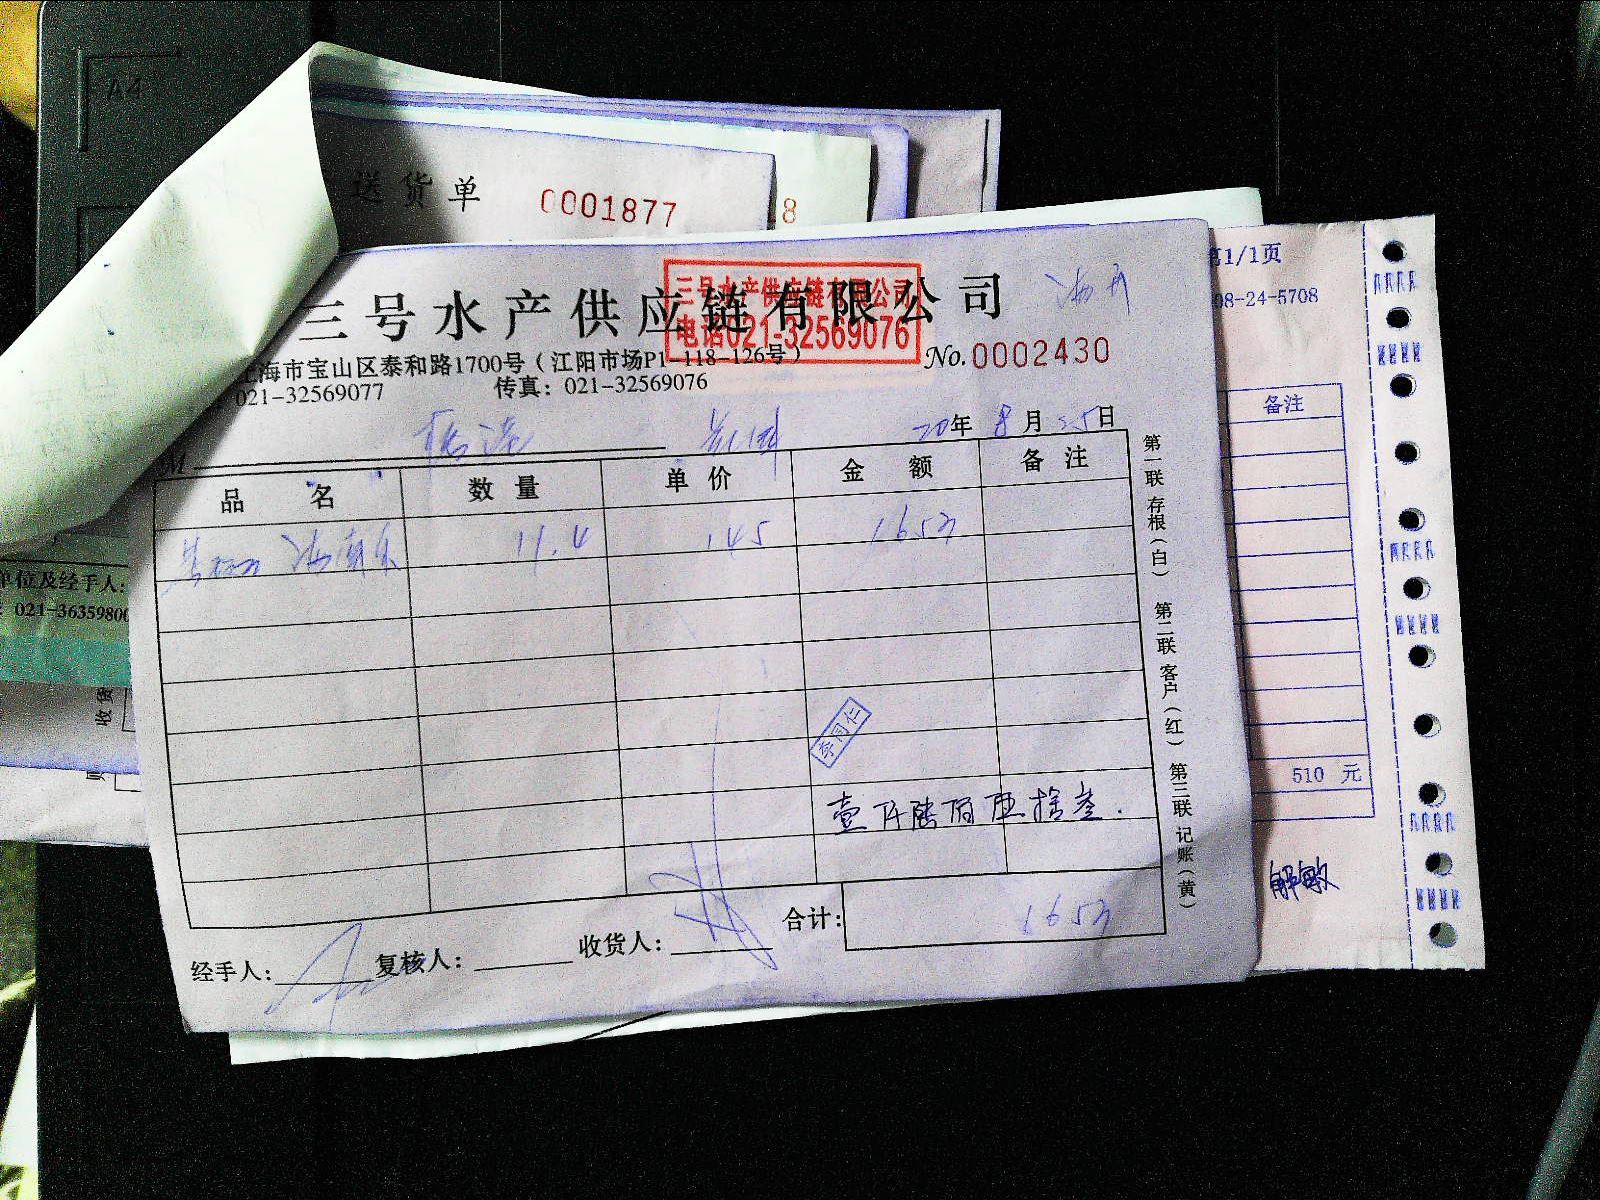 A4
送货单 0001877
8
三号水产供应链有限公司
三号水产供应链有限公司
电话021-32569076
上海市宝山区泰和路1700号(江阳市场P1-118-126号)
No.0002430
021-32569077 传真：021-32569076
20年 8月 25日
品名 数量 单价 金额 备注
11.4 145 1653
李同仁
壹仟陆佰伍拾叁.
合计: 1653
经手人: 复核人: 收货人:
第一联 存根(白) 第二联 客户(红) 第三联 记账(黄)
第1/1页
08-24-5708
备注
510 元
解敏
单位及经手人:
021-3635980
收货